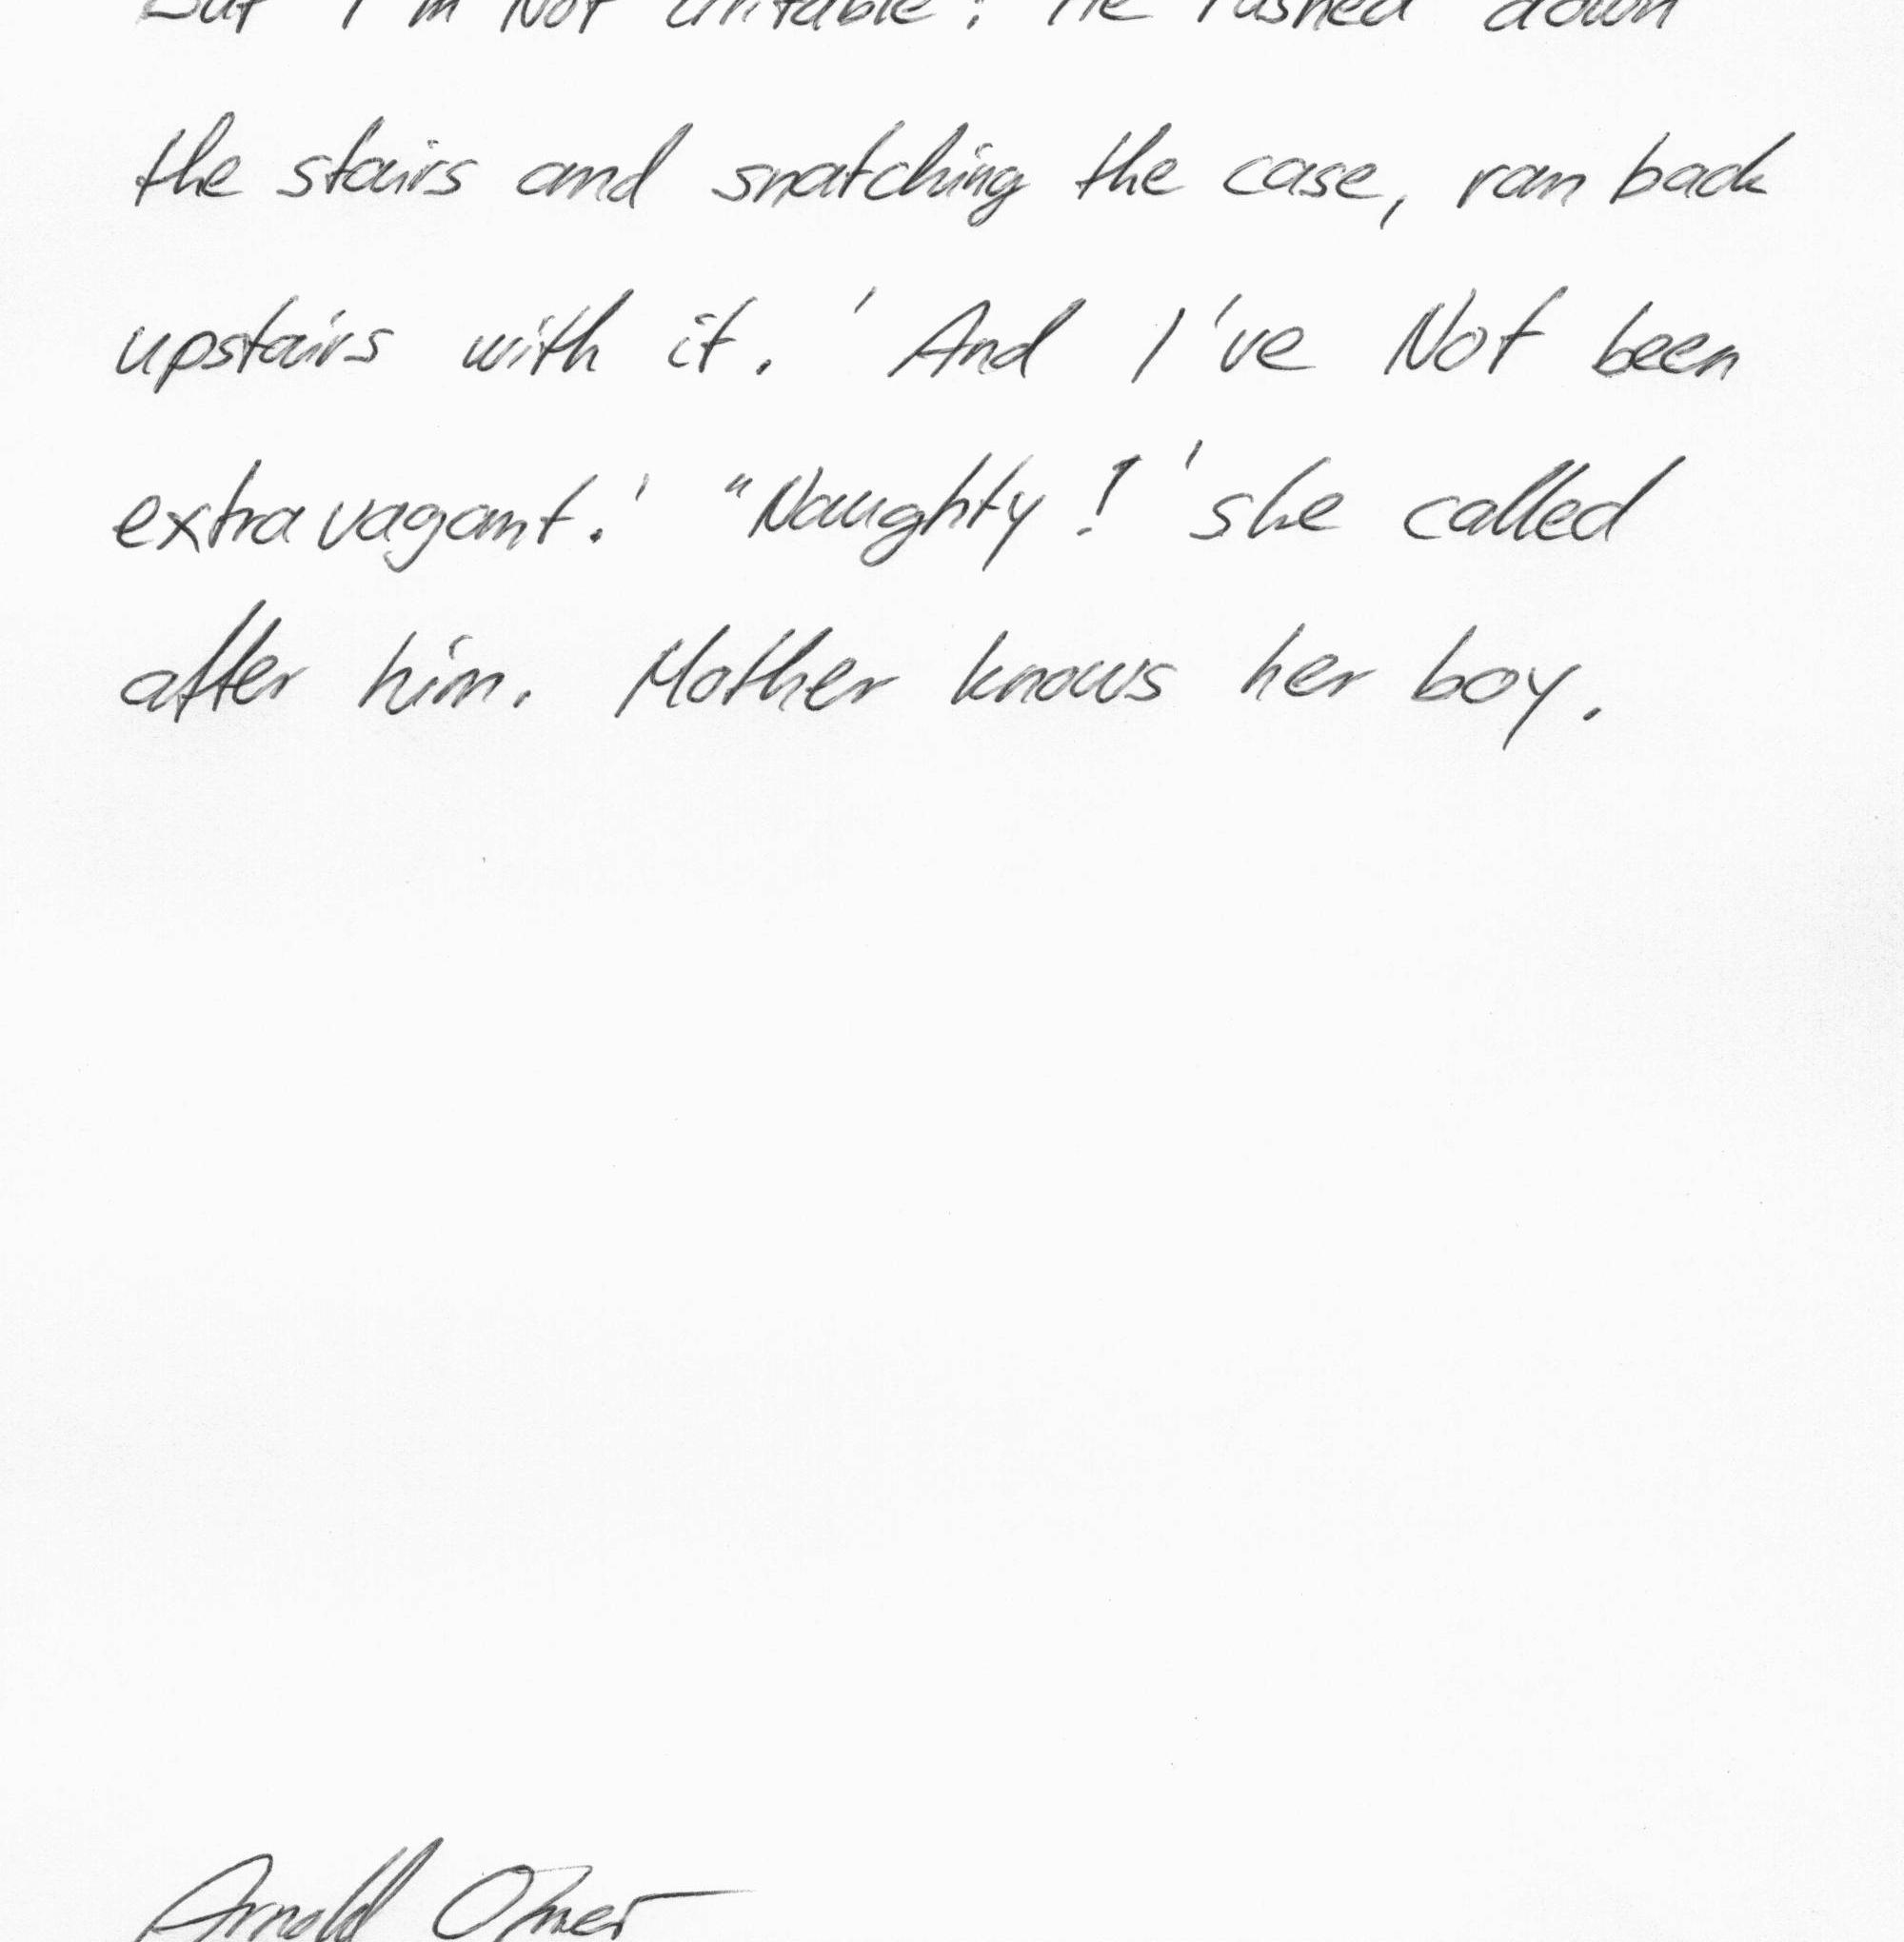 But I'm Not irritable! He rushed down
the stairs and snatching the case, ran back
upstairs with it. 'And I've Not been
extravagant.' "Naughty!' she called
after him. Mother knows her boy.
Arnold